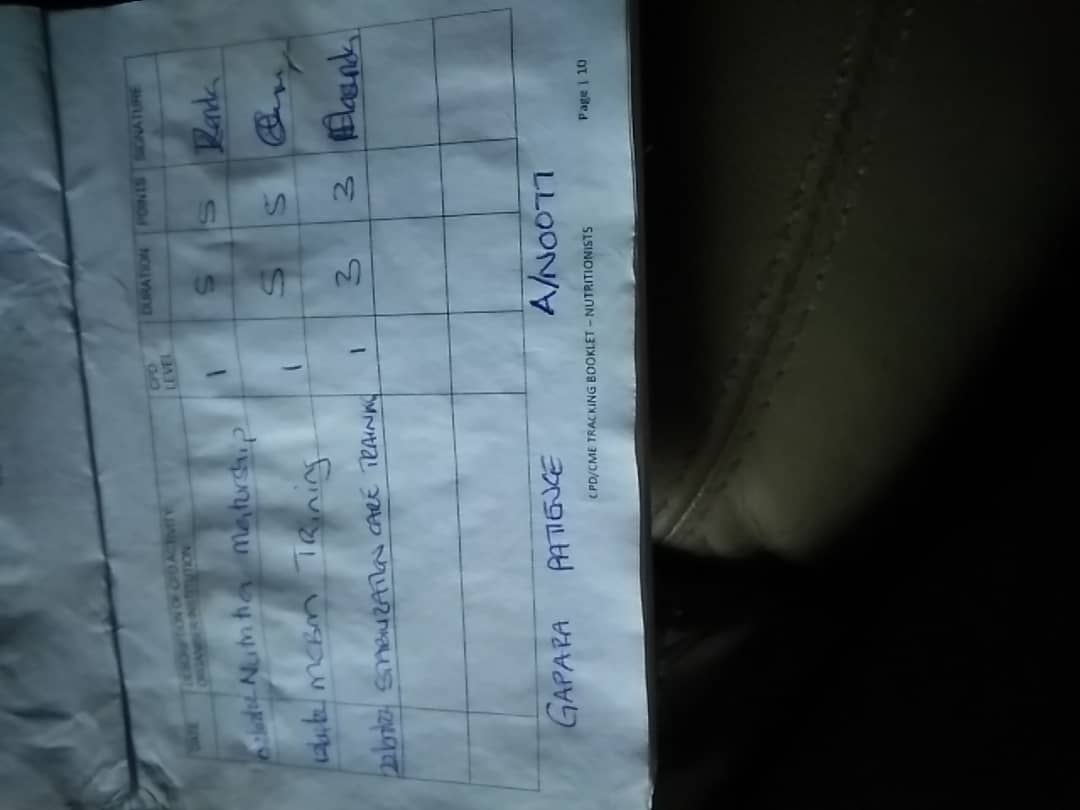 DATE DESCRIPTION OF CPD ACTIVITY ORGANISER/INSTITUTION CPD LEVEL DURATION POINTS SIGNATURE
Nutrition mentorship 1 5 5
MCBM Training 1 5 5
STABILIZATION CARE TRAINING 1 3 3
GAPARA PATIENCE A/N0077
CPD/CME TRACKING BOOKLET – NUTRITIONISTS Page | 10